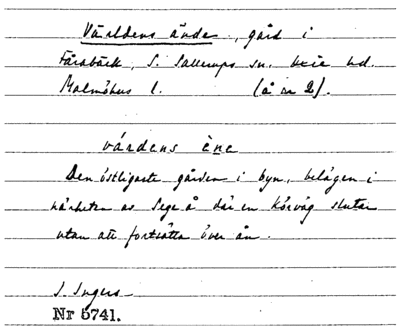 Världens ände, gård i
Fårabäck, S. Sallerups sn. Oxie hd.
Malmöhus l. (å nr 2).
várdens ène
Den östligaste gården i byn, belägen i
närheten av Sege å där en körväg slutar
utan att fortsätta över ån.
I. Ingers
Nr 5741.